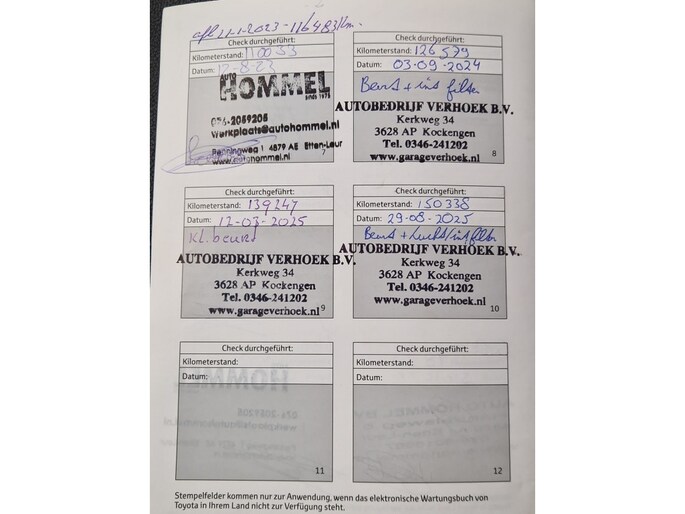 afl 11-1-2023 - 116483 Km.
Check durchgeführt:
Kilometerstand: 110033
Datum: 12-8-22
AUTO
HOMMEL
sinds 1975
076-2059205
Werkplaats@autohommel.nl
Penningweg 1 4879 AE Etten-Leur
www.autohommel.nl
7
Check durchgeführt:
Kilometerstand: 126579
Datum: 03-09-2024
Beurt + int filter
AUTOBEDRIJF VERHOEK B.V.
Kerkweg 34
3628 AP Kockengen
Tel. 0346-241202
www.garageverhoek.nl
8
Check durchgeführt:
Kilometerstand: 139247
Datum: 12-03-2025
Kl. beurt
AUTOBEDRIJF VERHOEK B.V.
Kerkweg 34
3628 AP Kockengen
Tel. 0346-241202
www.garageverhoek.nl
9
Check durchgeführt:
Kilometerstand: 150338
Datum: 29-08-2025
Beurt + Lucht/int filter
AUTOBEDRIJF VERHOEK B.V.
Kerkweg 34
3628 AP Kockengen
Tel. 0346-241202
www.garageverhoek.nl
10
Check durchgeführt:
Kilometerstand:
Datum:
11
Check durchgeführt:
Kilometerstand:
Datum:
12
Stempelfelder kommen nur zur Anwendung, wenn das elektronische Wartungsbuch von
Toyota in Ihrem Land nicht zur Verfügung steht.